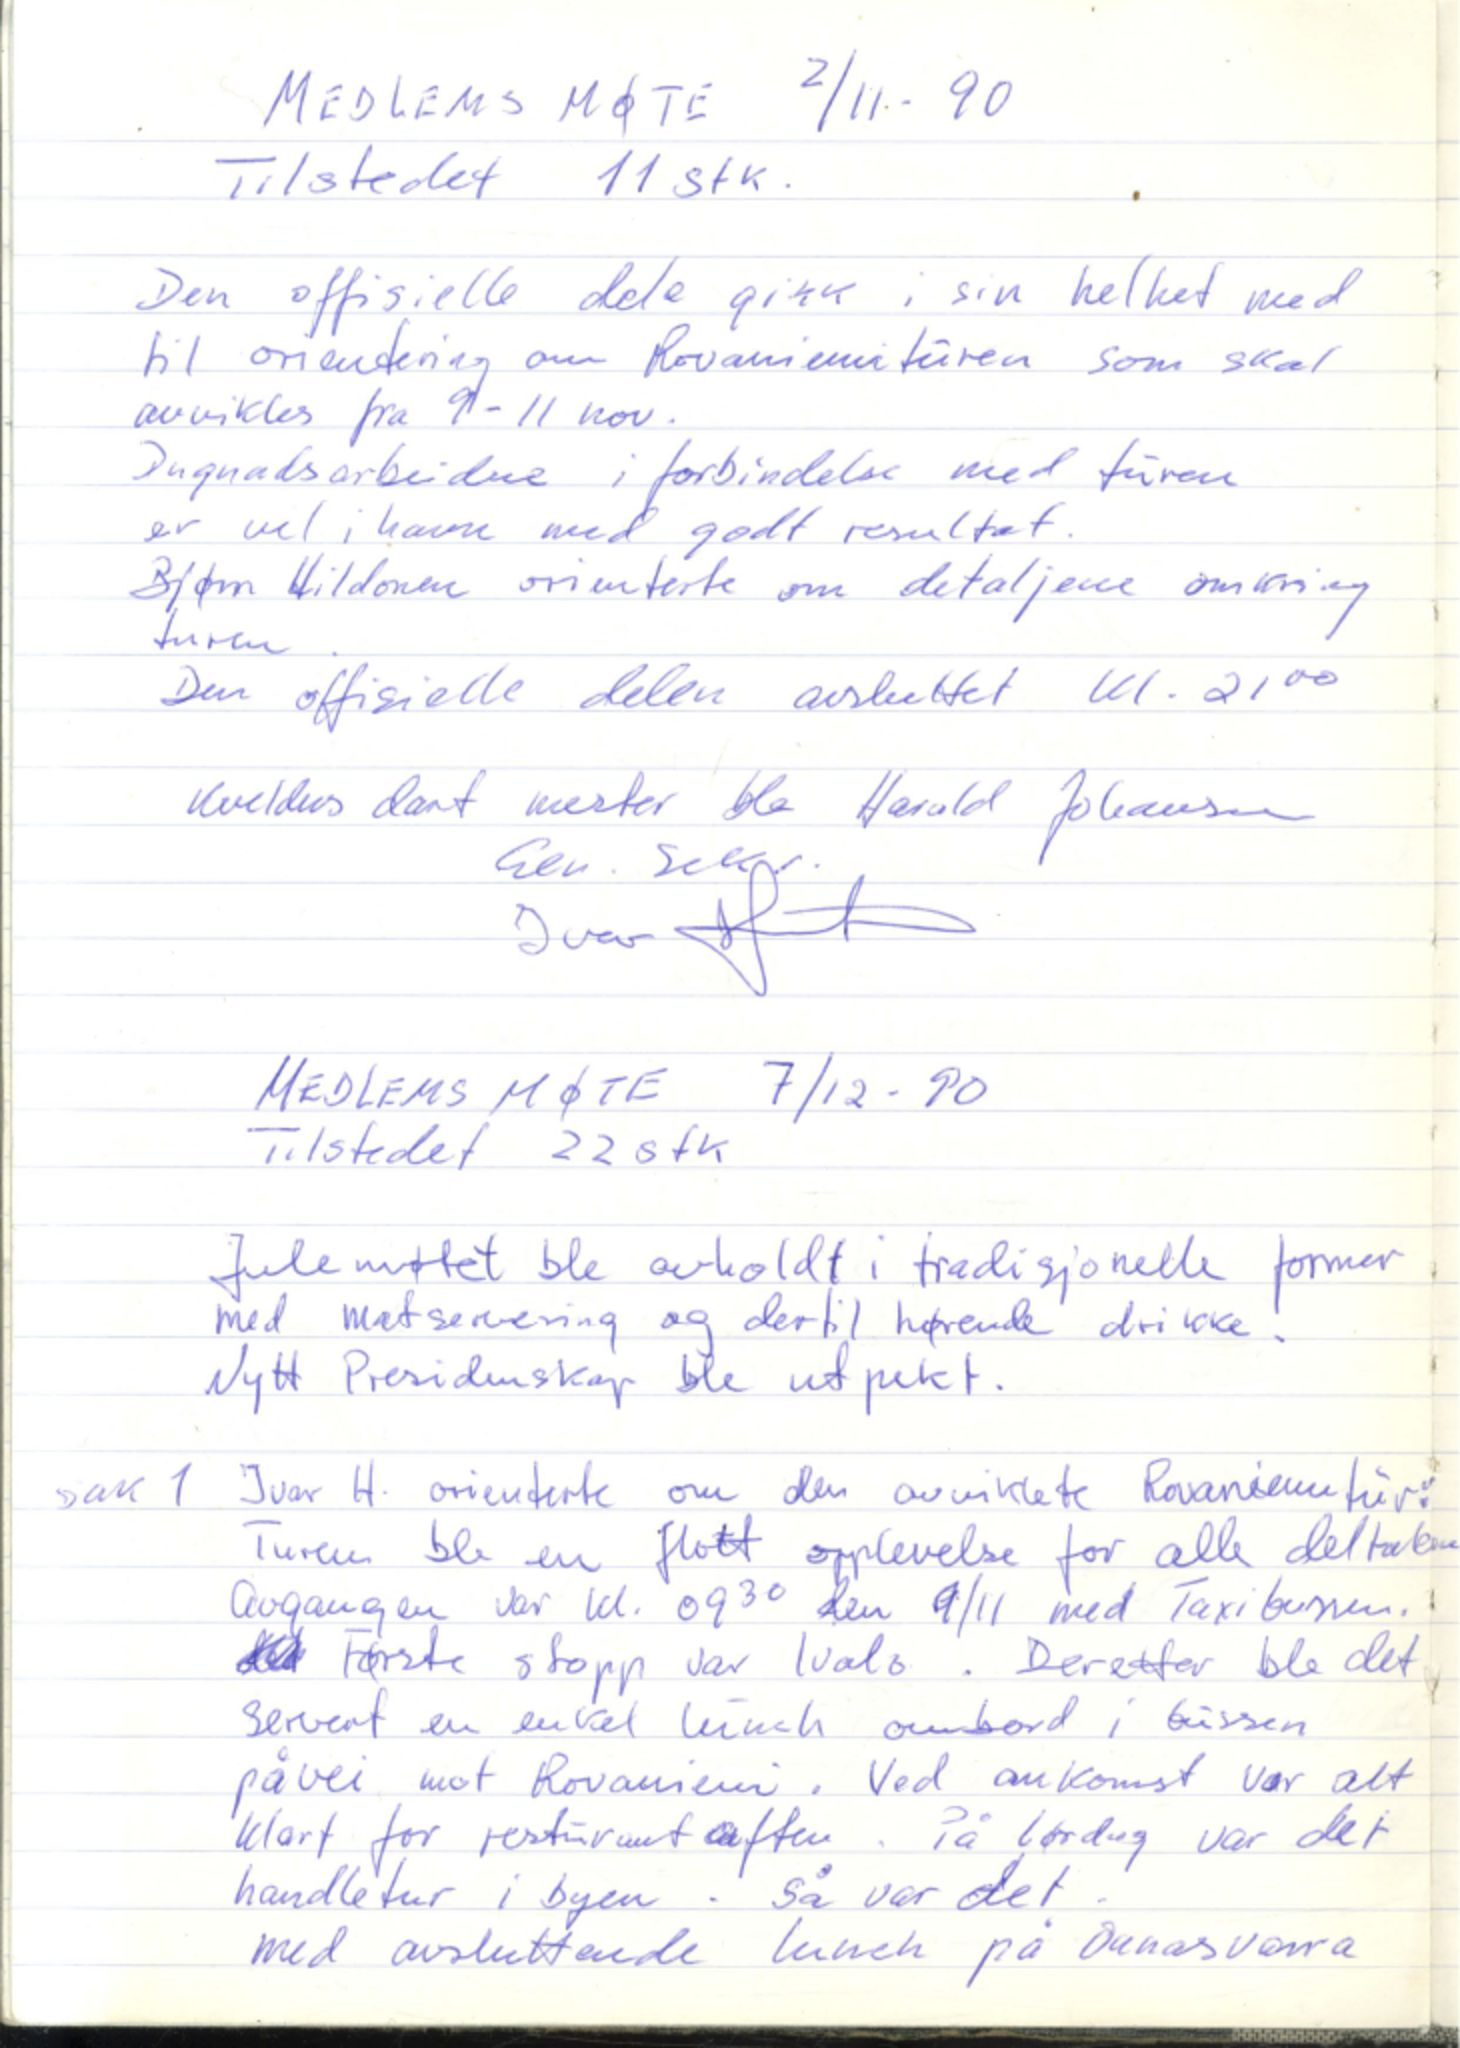 MEDLEMSMØTE 2/11-90
Tilstedet 11 stk.
Den offisielle dele gikk i sin helhet med
til orientering om Rovaniemitùren som skal
avvikles fra 9-11 nov.
Dugnadsarbeidne i forbindelse med tùren
er vel i havn med godt resultat.
Bjørn Hildonen orienterte om detaljene omkring
turen.
Den offisielle delen avsluttet kl. 21⁰⁰
Kveldens dart mester ble Harald Johansen
Gen. Sekr.
Ivar
MEDLEMSMØTE 7/12-90
Tilstedet 22 stk
Julemøtet ble avholdt i tradisjonelle former
med matservering og dertil hørende drikke.
Nytt Presidenskap ble utpekt.
sak 1 Ivar H. orienterte om den avviklete Rovaniemitùr:
Turen ble en flott opplevelse for alle deltaken
Avgangen var kl. 09³⁰ den 9/11 med Taxibussen.
Første stopp var Ivalo. Deretter ble det
servert en enkel lùnch ombord i bùssen
påvei mot Rovaniemi. Ved ankomst var alt
klart for restùrant aften. På lørdag var det
handletur i byen. Så var det.
med avsluttende lunch på Ounasvarra